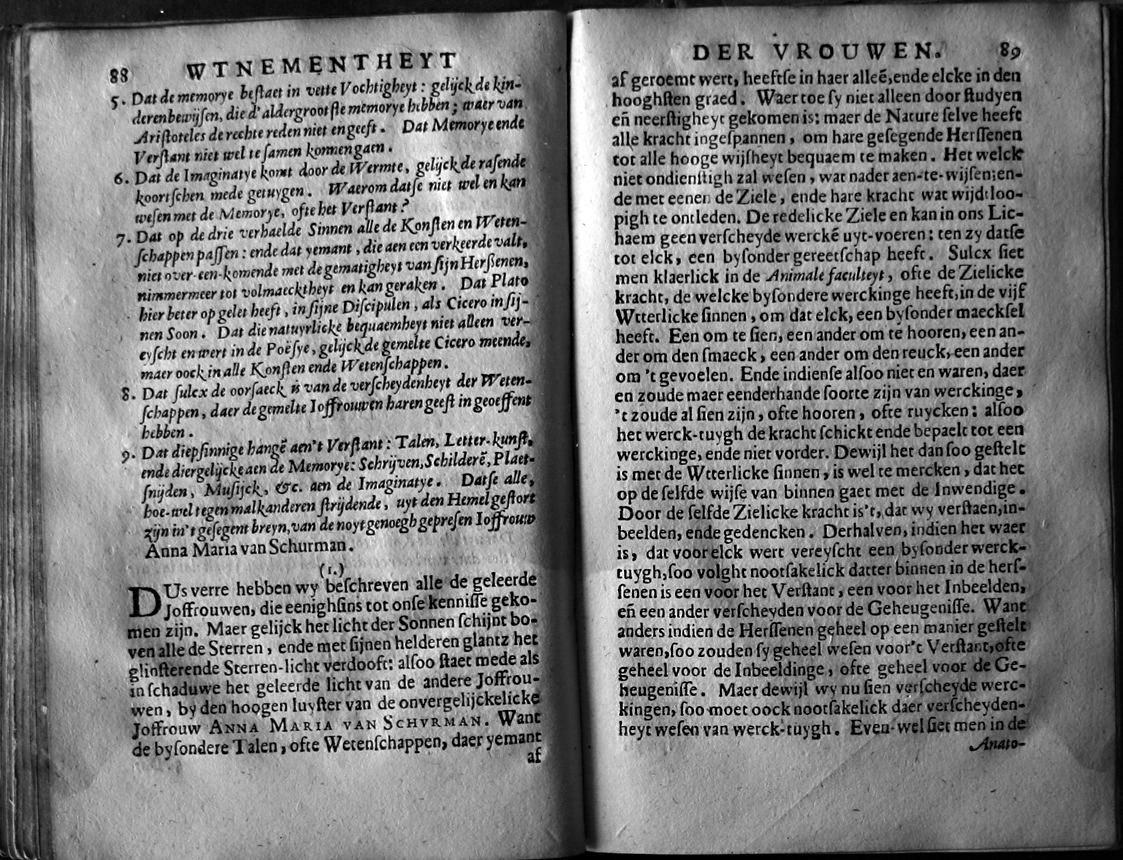 88 WTNEMENTHEYT
5. Dat de memorye beſtaet in vette Vochtigheyt: gelijck de kin-
derenbewijſen, die d'aldergrootſte memorye hebben; waer van
Ariſtoteles de rechte reden niet en geeft. Dat Memorye ende
Verſtant niet wel te ſamen konnen gaen.
6. Dat de Imaginatye komt door de Wermte, gelijck de raſende
koortſchen mede getuygen. Waerom datſe niet wel en kan
weſen met de Memorye, ofte het Verſtant?
7. Dat op de drie verhaelde Sinnen alle de Konſten en Weten-
ſchappen paſſen: ende dat yemant, die aen een verkeerde valt,
niet over-een-komende met de gematigheyt van ſijn Herßenen,
nimmermeer tot volmaecktheyt en kan geraken. Dat Plato
hier beter op gelet heeft, in ſijne Diſcipulen, als Cicero in ſij-
nen Soon. Dat die natuyrlicke bequaemheyt niet alleen ver-
eyſcht en wert in de Poëſye, gelijck de gemelte Cicero meende,
maer oock in alle Konſten ende Wetenſchappen.
8. Dat ſulcx de oorſaeck is van de verſcheydenheyt der Weten-
ſchappen, daer de gemelte Joffrouwen haren geeſt in geoeffent
hebben.
9. Dat diepſinnige hangē aen't Verſtant: Talen, Letter-kunſt,
ende diergelijcke aen de Memorye: Schrijven, Schilderē, Plaet-
ſnijden, Muſijck, &c. aen de Imaginatye. Datſe alle,
hoe-wel tegen malkanderen ſtrijdende, uyt den Hemel geſtort
zijn in't geſegent breyn, van de noyt genoegh gepreſen Joffrouw
Anna Maria van Schurman.
(1.)
DUs verre hebben wy beſchreven alle de geleerde
Joffrouwen, die eenighſins tot onſe kenniſſe geko-
men zijn. Maer gelijck het licht der Sonnen ſchijnt bo-
ven alle de Sterren, ende met ſijnen helderen glantz het
glinſterende Sterren-licht verdooft: alſoo ſtaet mede als
in ſchaduwe het geleerde licht van de andere Joffrou-
wen, by den hoogen luyſter van de onvergelijckelicke
Joffrouw ANNA MARIA VAN SCHVRMAN. Want
de byſondere Talen, ofte Wetenſchappen, daer yemant
af
DER VROUWEN. 89
af geroemt wert, heeftſe in haer alleē, ende elcke in den
hooghſten graed. Waer toe ſy niet alleen door ſtudyen
eñ neerſtigheyt gekomen is: maer de Nature ſelve heeft
alle kracht ingeſpannen, om hare geſegende Herſſenen
tot alle hooge wijſheyt bequaem te maken. Het welck
niet ondienſtigh zal weſen, wat nader aen-te-wijſen; en-
de met eenen de Ziele, ende hare kracht wat wijdtloo-
pigh te ontleden. De redelicke Ziele en kan in ons Lic-
haem geen verſcheyde werckē uyt-voeren: ten zy datſe
tot elck, een byſonder gereetſchap heeft. Sulcx ſiet
men klaerlick in de Animale faculteyt, ofte de Zielicke
kracht, de welcke byſondere werckinge heeft, in de vijf
Wtterlicke ſinnen, om dat elck, een byſonder maeckſel
heeft. Een om te ſien, een ander om te hooren, een an-
der om den ſmaeck, een ander om den reuck, een ander
om 't gevoelen. Ende indienſe alſoo niet en waren, daer
en zoude maer eenderhande ſoorte zijn van werckinge,
't zoude al ſien zijn, ofte hooren, ofte ruycken: alſoo
het werck-tuygh de kracht ſchickt ende bepaelt tot een
werckinge, ende niet vorder. Dewijl het dan ſoo geſtelt
is met de Wtterlicke ſinnen, is wel te mercken, dat het
op de ſelfde wijſe van binnen gaet met de Inwendige.
Door de ſelfde Zielicke kracht is't, dat wy verſtaen, in-
beelden, ende gedencken. Derhalven, indien het waer
is, dat voor elck wert vereyſcht een byſonder werck-
tuygh, ſoo volght nootſakelick datter binnen in de herſ-
ſenen is een voor het Verſtant, een voor het Inbeelden,
eñ een ander verſcheyden voor de Geheugeniſſe. Want
anders indien de Herſſenen geheel op een manier geſtelt
waren, ſoo zouden ſy geheel weſen voor't Verſtant, ofte
geheel voor de Inbeeldinge, ofte geheel voor de Ge-
heugeniſſe. Maer dewijl wy nu ſien verſcheyde werc-
kingen, ſoo moet oock nootſakelick daer verſcheyden-
heyt weſen van werck-tuygh. Even-wel ſiet men in de
Anato-